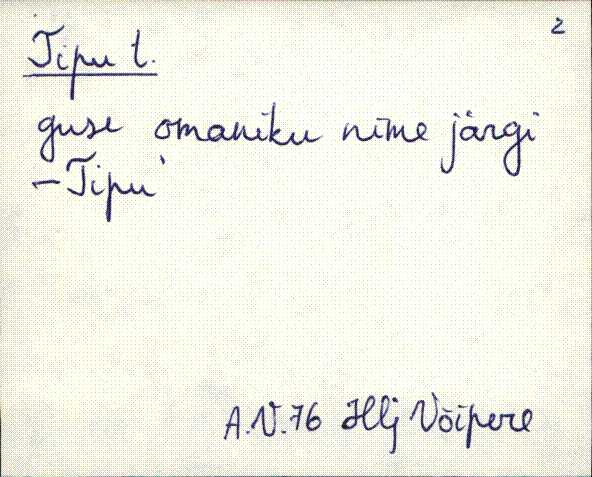 2
Tipu t.
guse omaniku nime järgi
– Tipu'
A.V.76 Hlj Võipere